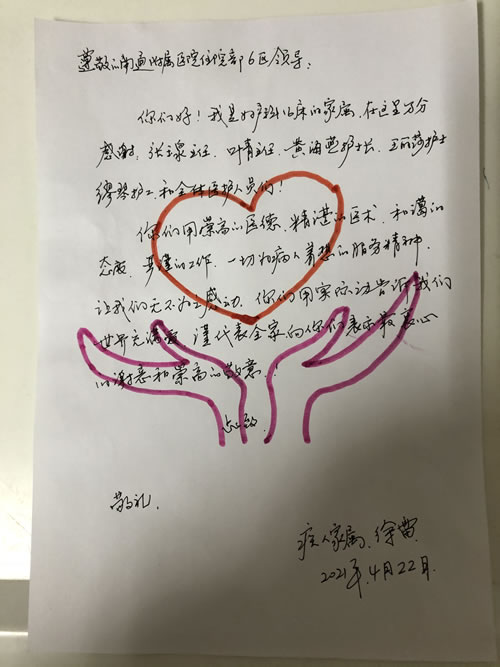 尊敬的南通附属医院住院部6区领导:
你们好!我是妇产科 床的家属,在这里万分
感谢:张 主任、叶青主任、黄海燕护士长、王丽莎护士
缪琴护工和全体医护人员们!
你们用崇高的医德、精湛的医术、和蔼的
态度、严谨的工作、一切为病人着想的服务精神,
让我们无不为之感动,你们用实际 告诉我们
世界充满爱,谨代表全家向你们表示最衷心
的谢意和崇高的敬意!
此致
敬礼
病人家属、徐雷
2021年.4月22日.